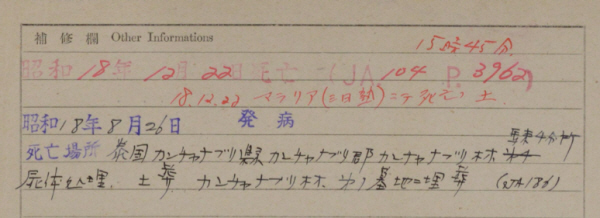 補修欄 Other Informations
15時45分
昭和18年12月22日死亡 (JA 104 P. 3962)
18.12.22 マラリア(三日熱)ニテ死亡 土
昭和18年8月26日 発病
馬来4分所
死亡場所 泰国カンチャナブリ県カンチャナブリ郡カンチャナブリ村
屍体処理. 土葬 カンチャナブリ村 墓地ニ埋葬